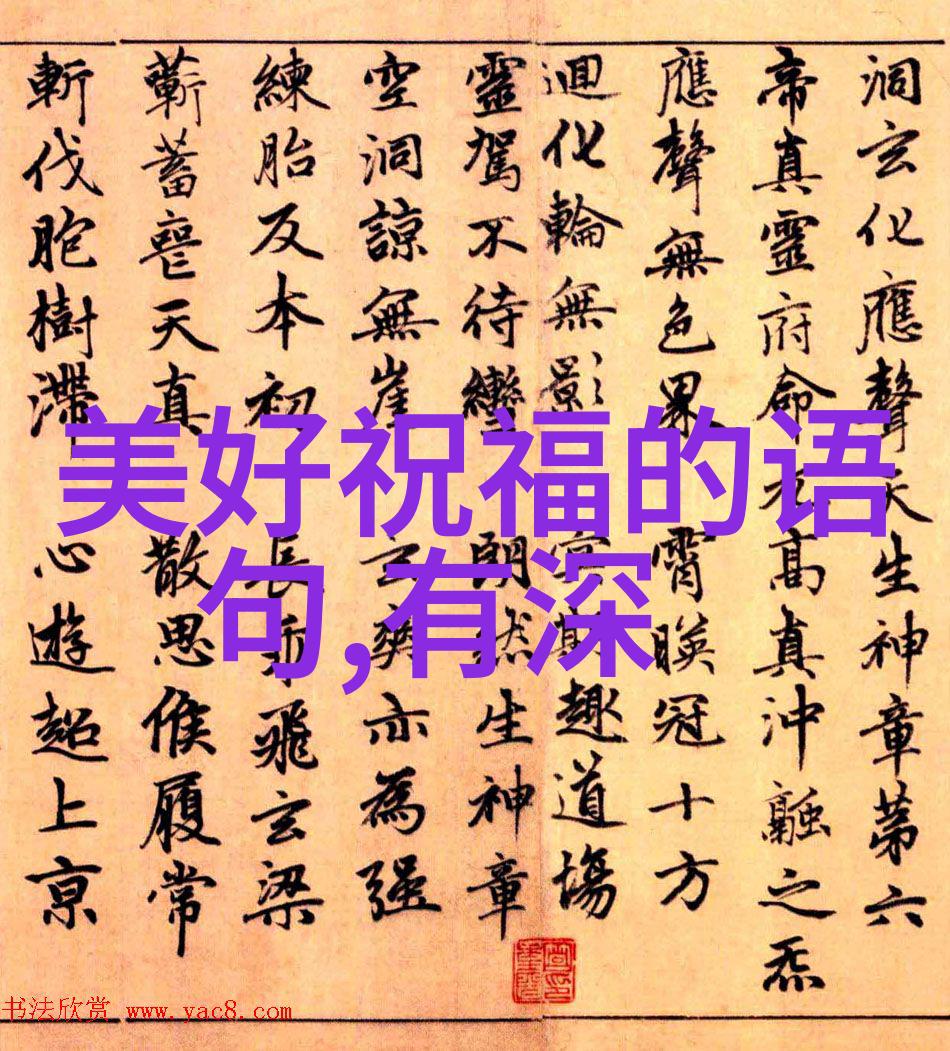 洞玄化應聲天生神章苐六
帝真靈府命元高真沖融之炁
應聲無色界 霄暎冠十方
迴化輪無影 冥期趣道場
靈駕不待轡 朗然生神章
空洞諒無崖 玄爽亦為強
練胎反本初 長乖飛玄梁
蘄蓄喪天真 散思候履常
斬伐胞樹滯 心遊超上京
美好祝福的语
句,有深
书法欣赏 www.yac8.com